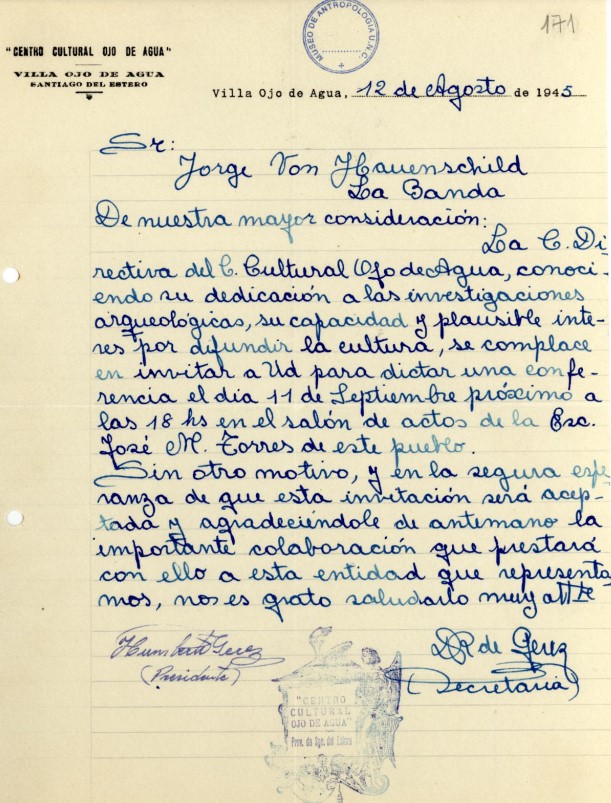 MUSEO DE ANTROPOLOGIA U.N.C.
171
"CENTRO CULTURAL OJO DE AGUA"
VILLA OJO DE AGUA
SANTIAGO DEL ESTERO
Villa Ojo de Agua, 12 de Agosto de 1945
Sr:
Jorge Von Hauenschild
La Banda
De nuestra mayor consideración:
La C. Di-
rectiva del C. Cultural Ojo de Agua, conoci-
endo su dedicación a las investigaciones
arqueológicas, su capacidad y plausible inte-
res por difundir la cultura, se complace
en invitar a Ud para dictar una confe-
rencia el dia 11 de Septiembre próximo a
las 18 hs en el salón de actos de la Esc.
José M. Torres de este pueblo.
Sin otro motivo, y en la segura espe
ranza de que esta invitación será acep-
tada y agradeciéndole de antemano la
importante colaboración que prestará
con ello a esta entidad que representa
mos, nos es grato saludarlo muy atte
Humberto Gerez
(Presidente)
DR de Gerez
(Secretaria)
"CENTRO
CULTURAL
OJO DE AGUA"
Prov. de Sgo. del Estero